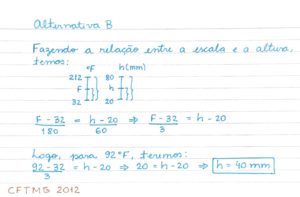 Alternativa B
Fazendo a relação entre a escala e a altura,
temos:
°F h(mm)
212 80
F h
32 20
F - 32 / 180 = h - 20 / 60 ⇒ F - 32 / 3 = h - 20
Logo, para 92°F, teremos:
92 - 32 / 3 = h - 20 ⇒ 20 = h - 20 ⇒ h = 40 mm
CFTMG 2012